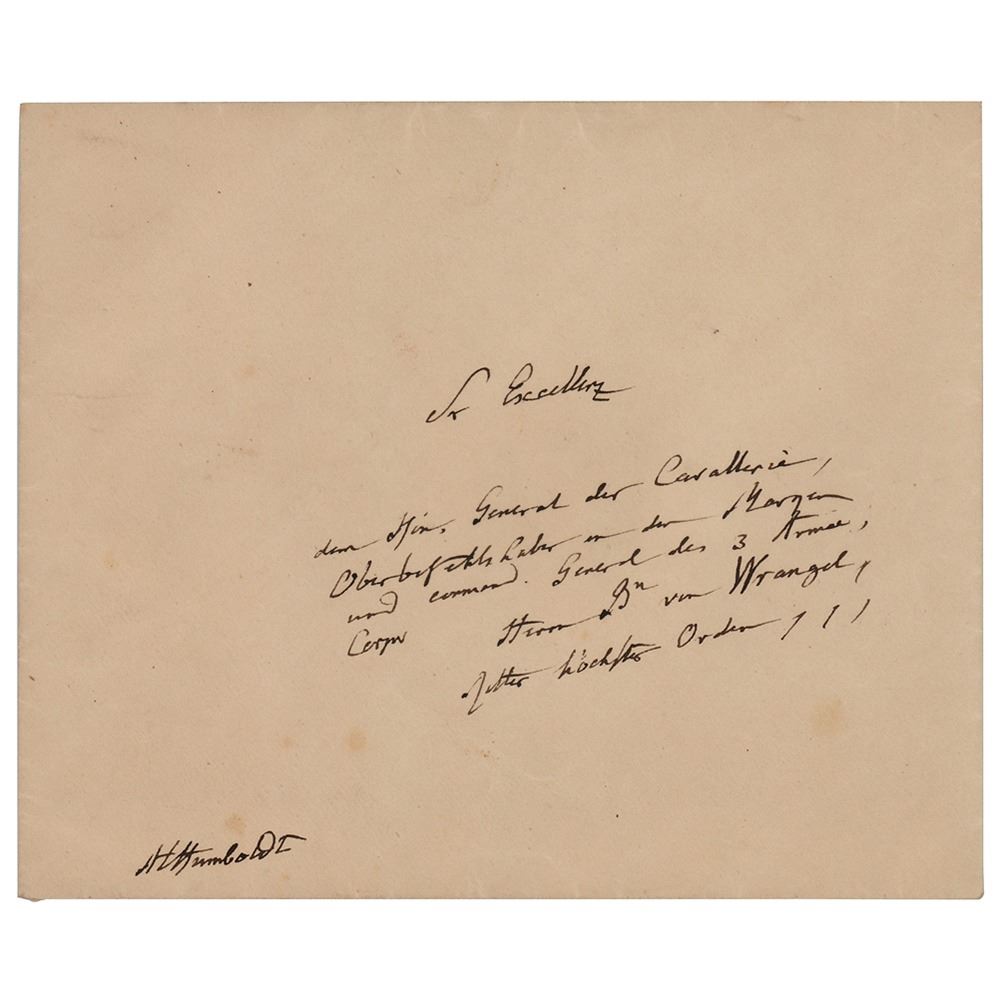 Sr Excellenz
dem Hin. General der Cavallerie,
Oberbefehlshaber in den Margen
und command. General des 3 Armee,
Corps Herrn Bn von Wrangel,
Ritter höchster Orden / / /
AlHumboldt